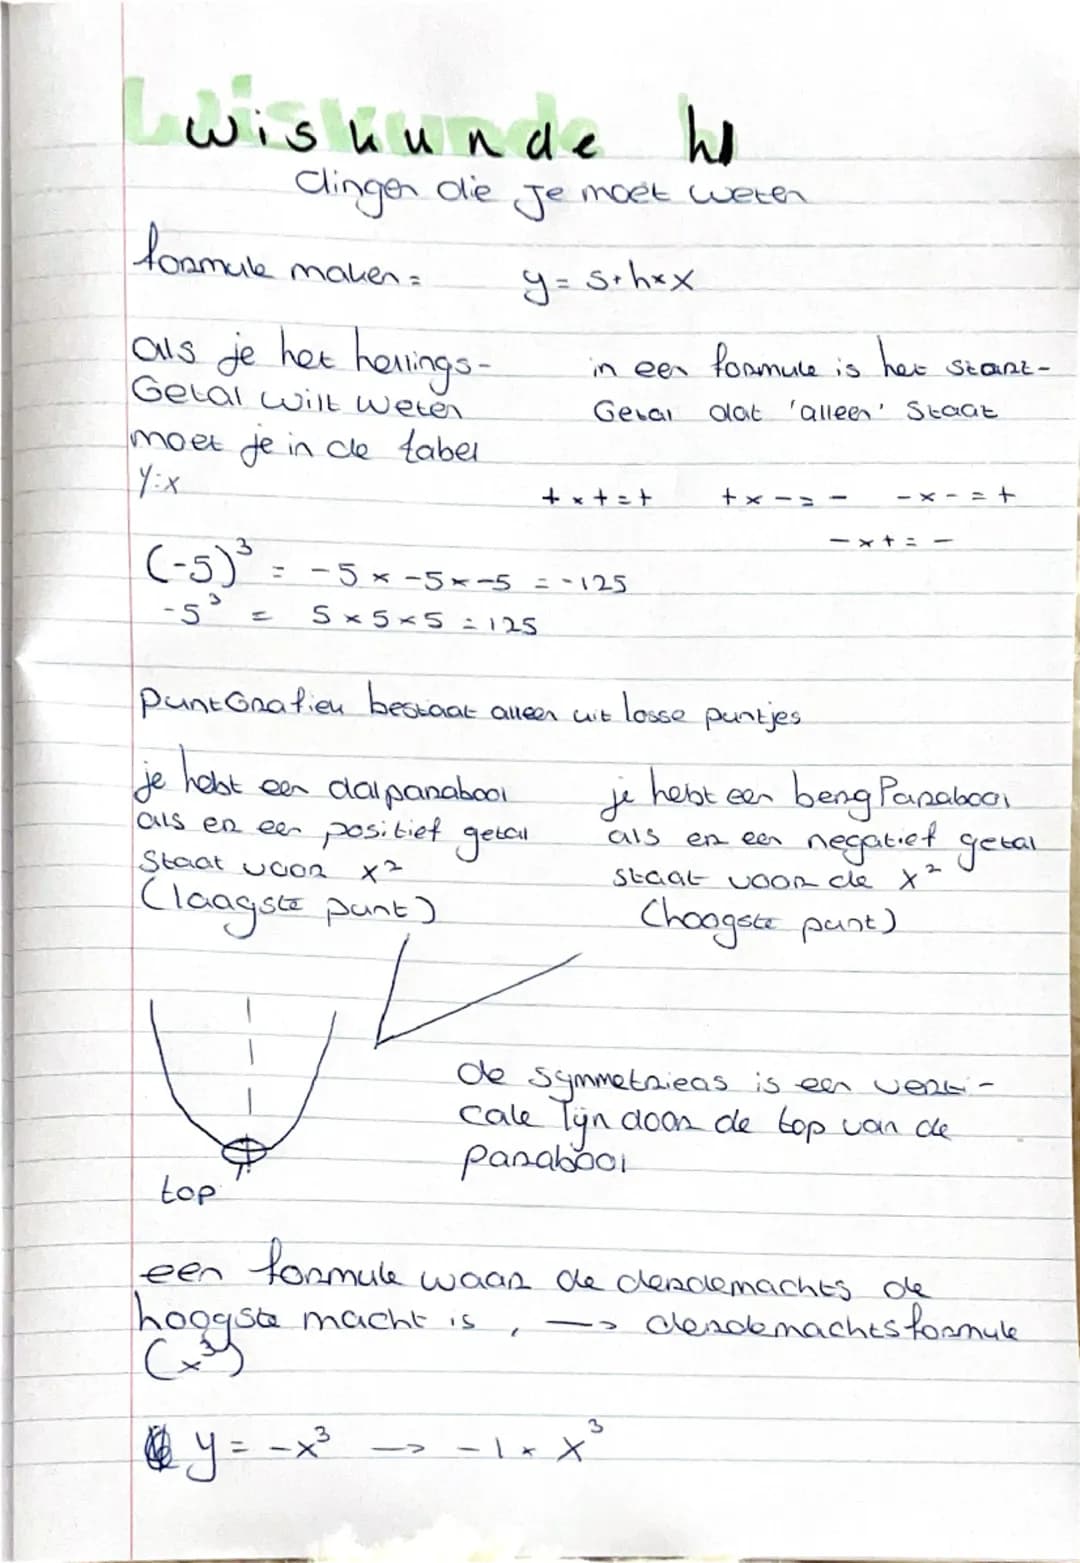 wiskunde h1
dingen die je moet weten
formule maken = y = s+h×x
als je het hellings-
Getal wilt weten
moet je in de tabel
y:x
in een formule is het start-
Getal dat 'alleen' staat
+ × + = + + × - = - - × - = +
- × + = -
(-5)³ = -5 × -5 × -5 = -125
-5³ = 5 × 5 × 5 = 125
puntGrafiek bestaat alleen uit losse puntjes
je hebt een dalparabool
als er een positief getal
staat voor x²
(laagste punt)
je hebt een bergParabool
als er een negatief getal
staat voor de x²
(hoogste punt)
de symmetrieas is een verti-
cale lijn door de top van de
parabool
top
een formule waar de derdemachts de
hoogste macht is , → derdemachtsformule
(x³)
y = -x³ → -1 × x³